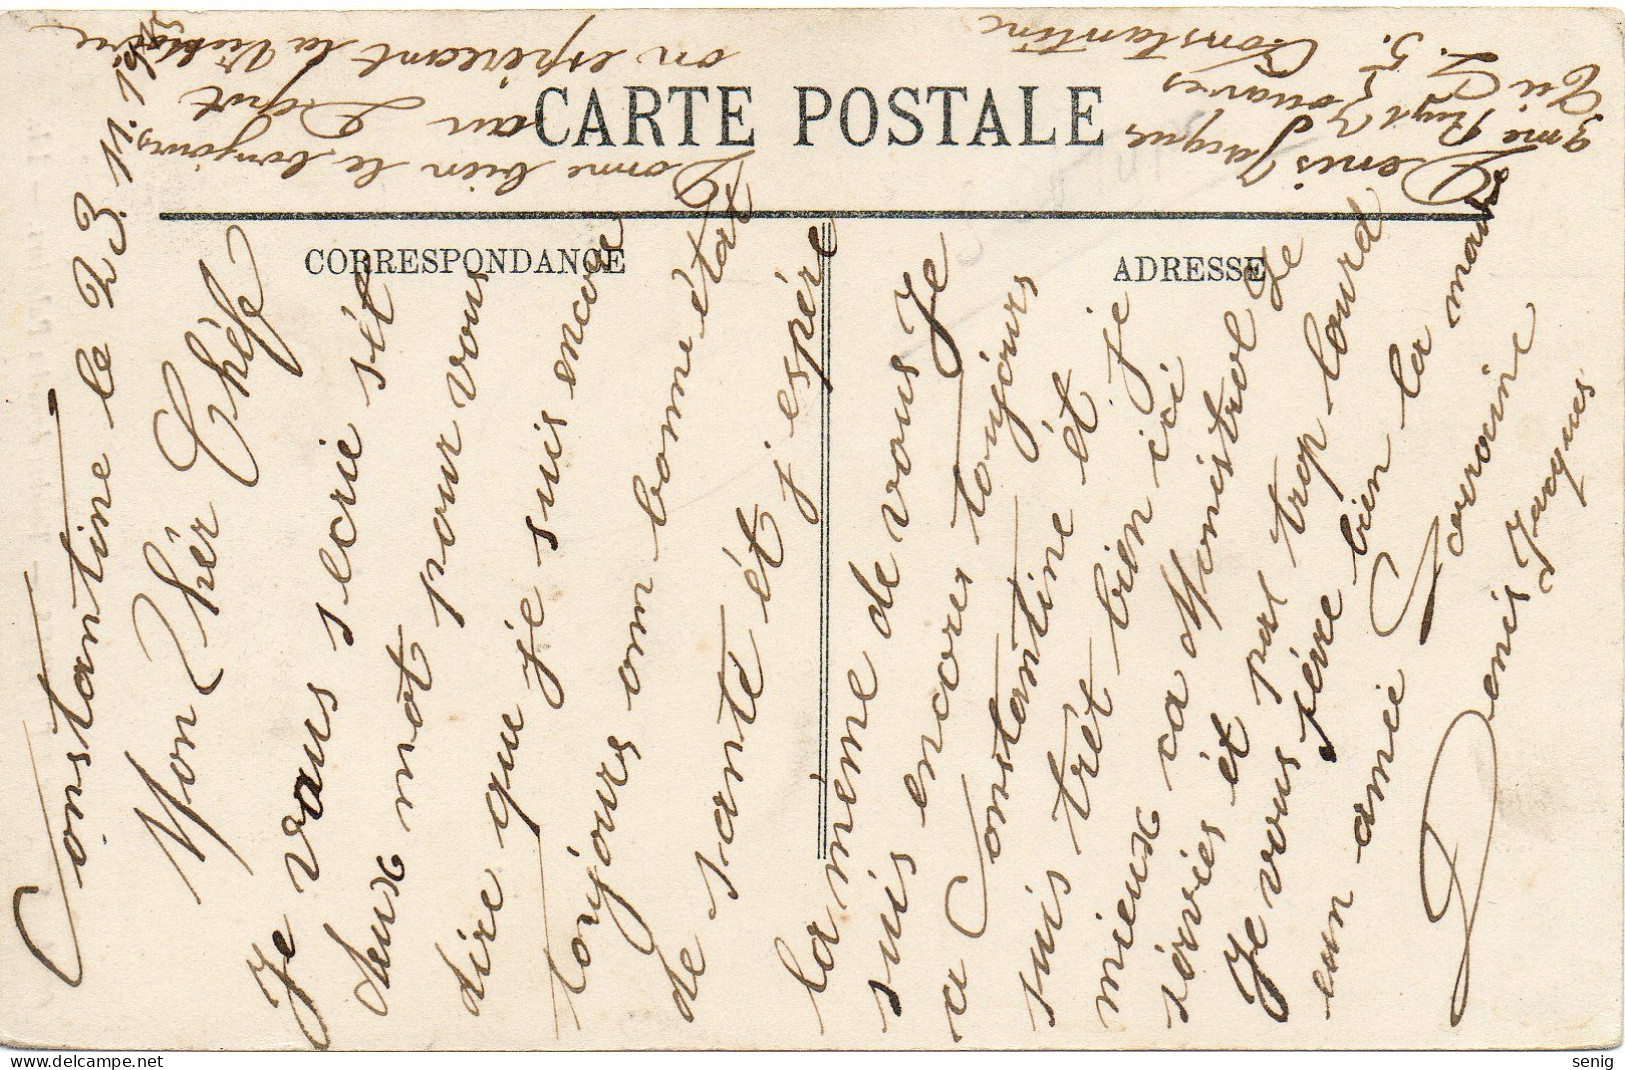 CARTE POSTALE
CORRESPONDANCE
ADRESSE
Constantine le 23. 11. 19
Mon Chér Chéfe
Je vous s ecrie sét
deux mot pour vous
dire que je suis encore
toujours om bonne état
de santé ét j espére
la méme de vous Je
suis encore toujours
a Constantine ét je
suis trét bien ici
mieux ca Monistrol Le
sérvies ét pat trop lourd
Je vous sérre bien la main
eun amie Lorraine
Denis Jacques
Donne bien le bonjours
au Dépot
on espéreant la Victoire
Denis Jacques
9me Rugt Zouaves
C. 5.
Constantine
senig